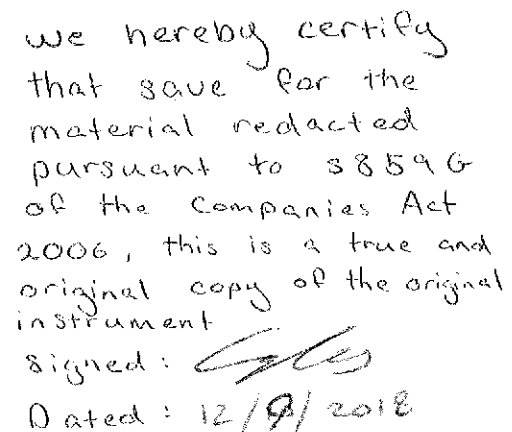 We hereby certify
that save for the
material redacted
pursuant to s859G
of the Companies Act
2006, this is a true and
original copy of the original
instrument
Signed:
Dated: 12/9/2018